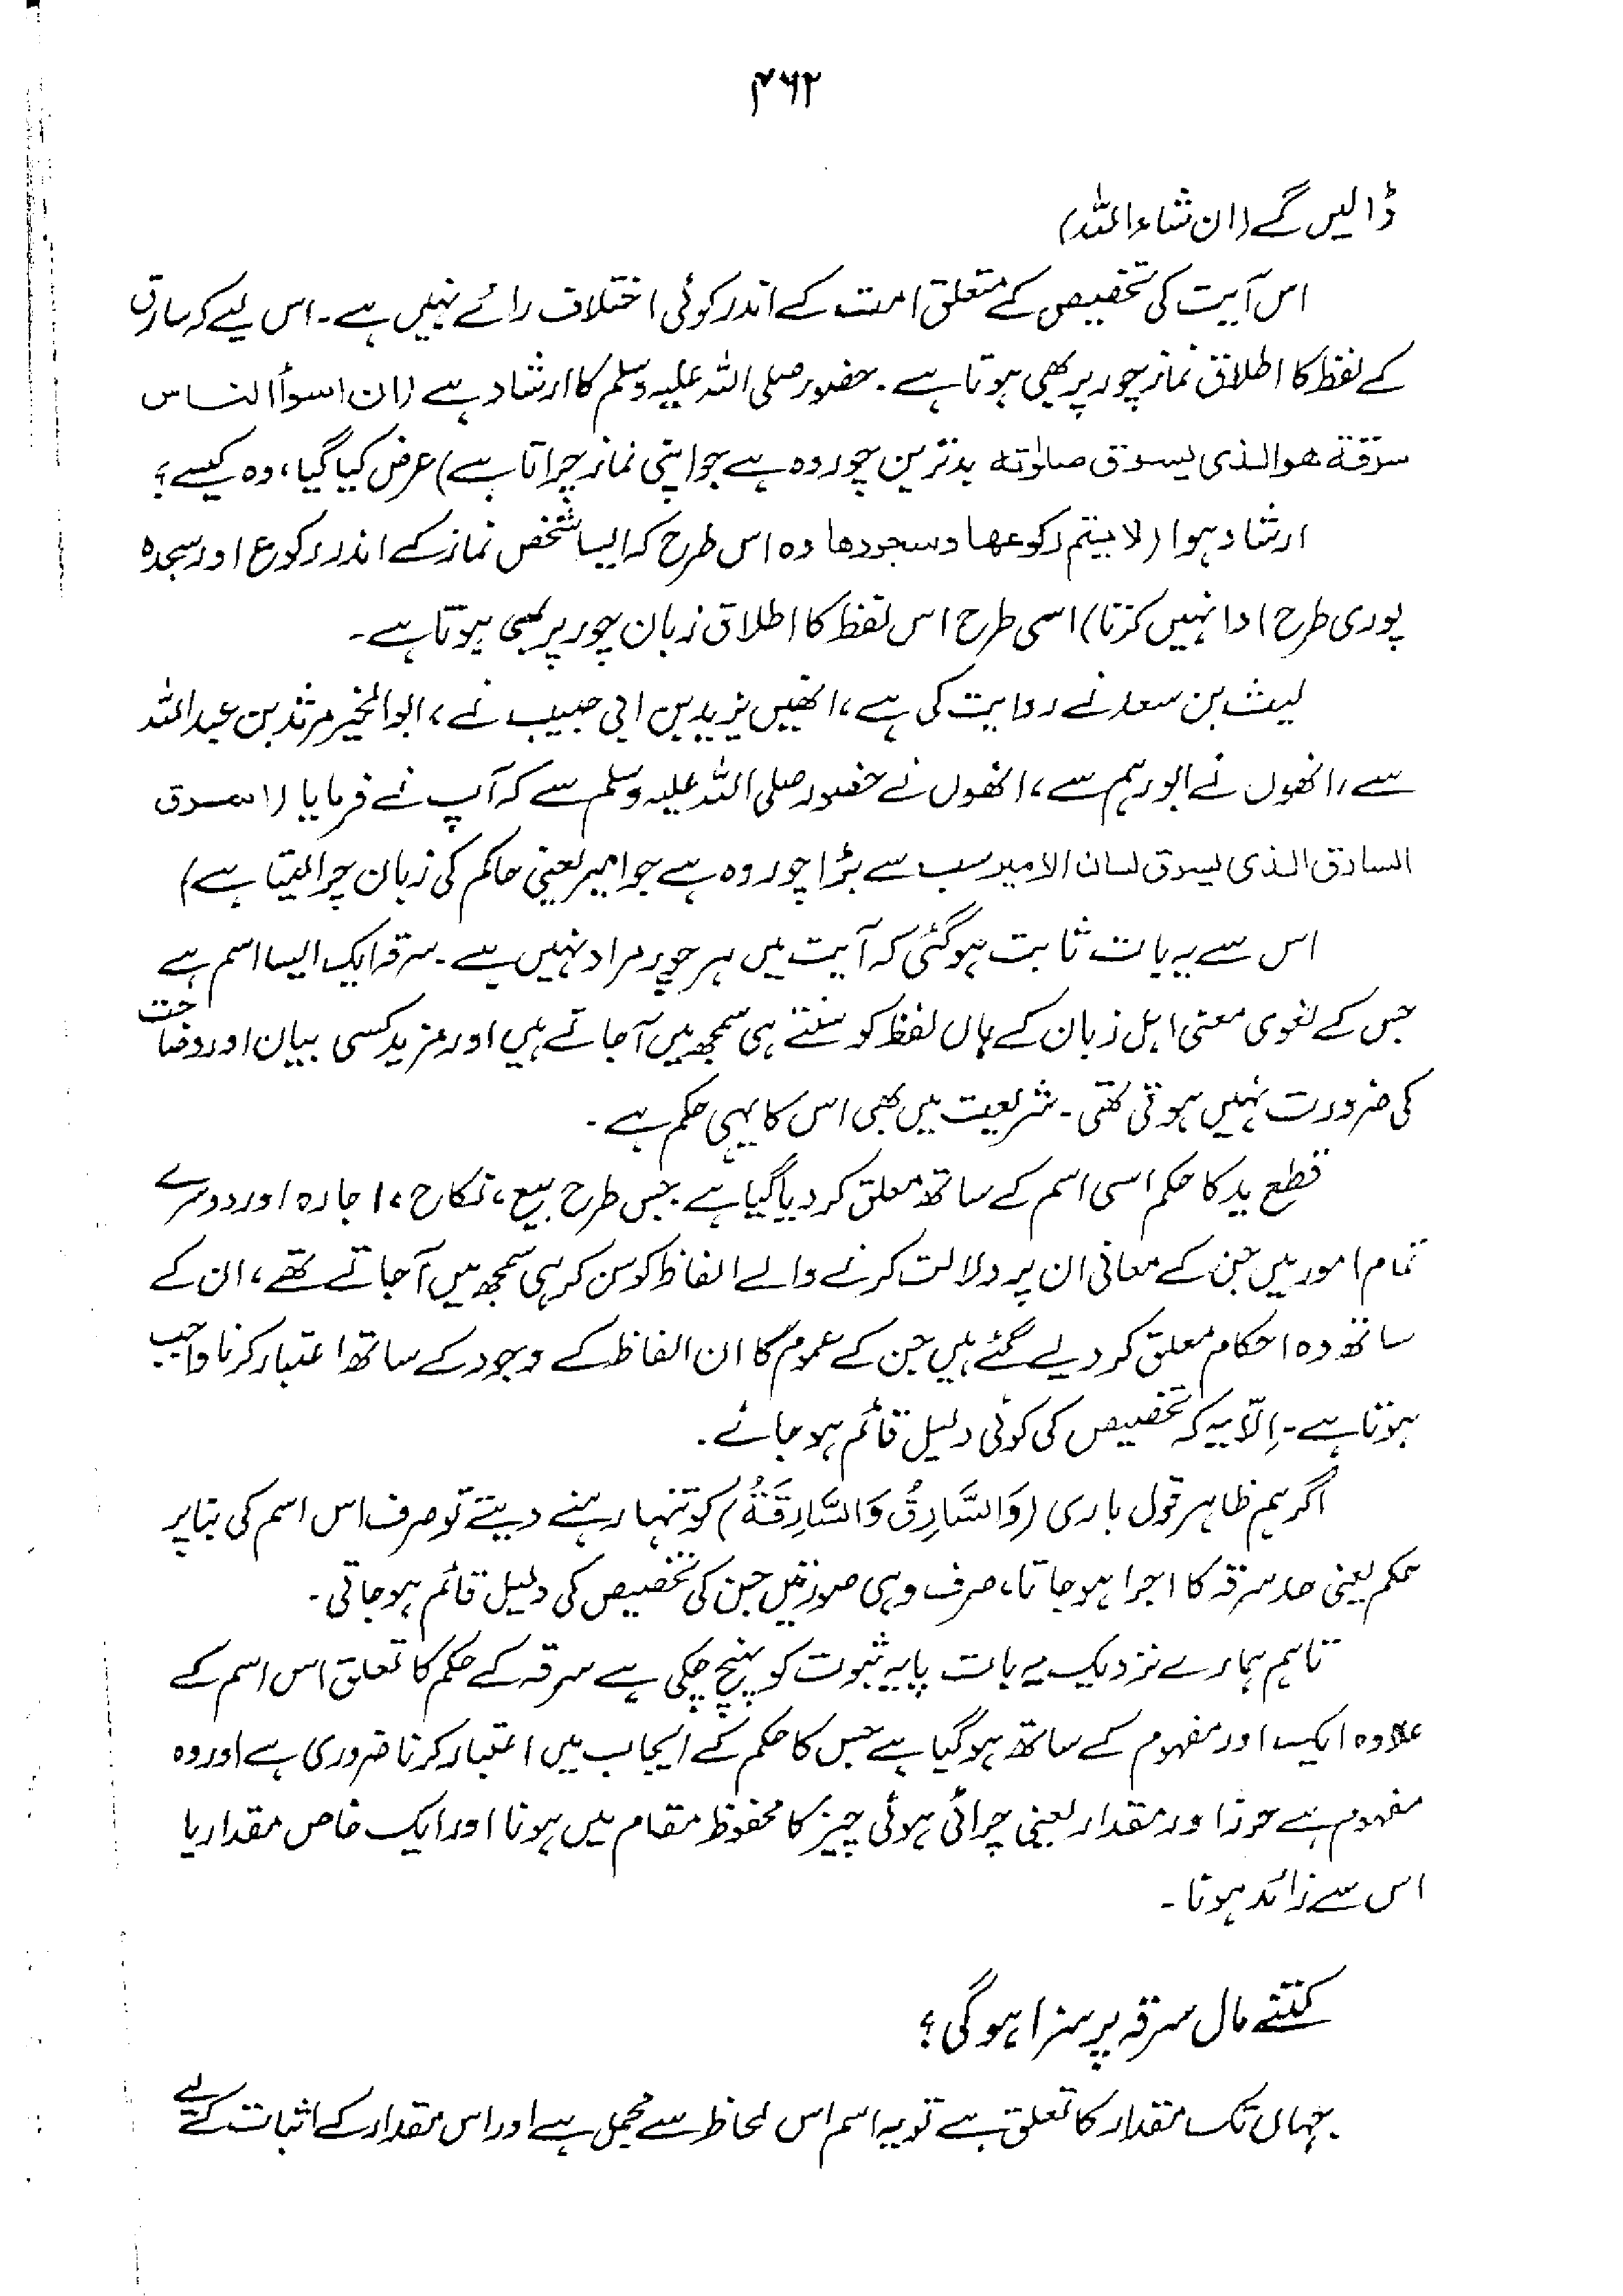 ۴۶۲
ڈالیں گے (ان شاء اللہ)
اس آیت کی تخصیص کے متعلق امت کے اندر کوئی اختلاف رائے نہیں ہے۔ اس لیے کہ سارق
کے لفظ کا اطلاق نماز چور پر بھی ہوتا ہے۔ حضور صلی اللہ علیہ وسلم کا ارشاد ہے (ان اسوأ الناس
سرقة هو الذی یسرق صلوٰته بدترین چور وہ ہے جو اپنی نماز چراتا ہے) عرض کیا گیا، وہ کیسے؟
ارشاد ہوا (لا یتم رکوعها وسجودها وہ اس طرح کہ ایسا شخص نماز کے اندر رکوع اور سجدہ
پوری طرح ادا نہیں کرتا) اسی طرح اس لفظ کا اطلاق زبان چور پر بھی ہوتا ہے۔
لیث بن سعد نے روایت کی ہے، انھیں یزید بن ابی حبیب نے، ابوالخیر مرثد بن عبداللہ
سے، انھوں نے ابو رہم سے، انھوں نے حضور صلی اللہ علیہ وسلم سے کہ آپ نے فرمایا (اسرق
السارق الذی یسرق لسان الامیر سب سے بڑا چور وہ ہے جو امیر یعنی حاکم کی زبان چرا لیتا ہے)
اس سے یہ بات ثابت ہو گئی کہ آیت میں ہر چور مراد نہیں ہے۔ سرقہ ایک ایسا اسم ہے
جس کے لغوی معنی اہل زبان کے ہاں لفظ کو سنتے ہی سمجھ میں آجاتے ہیں اور مزید کسی بیان اور وضاحت
کی ضرورت نہیں ہوتی تھی۔ شریعت میں بھی اس کا یہی حکم ہے۔
قطع ید کا حکم اسی اسم کے ساتھ معلق کر دیا گیا ہے۔ جس طرح بیع، نکاح، اجارہ اور دوسرے
تمام امور میں جن کے معانی ان پر دلالت کرنے والے الفاظ کو سن کر ہی سمجھ میں آ جاتے تھے، ان کے
ساتھ وہ احکام معلق کر دیے گئے ہیں جن کے عموم کا ان الفاظ کے وجود کے ساتھ اعتبار کرنا واجب
ہوتا ہے۔ اِلّا یہ کہ تخصیص کی کوئی دلیل قائم ہو جائے۔
اگر ہم ظاہر قول باری (وَالسَّارِقُ وَالسَّارِقَةُ) کو تنہا رہنے دیتے تو صرف اس اسم کی بنا پر
حکم یعنی حد سرقہ کا اجرا ہو جاتا، صرف وہی صورتیں جن کی تخصیص کی دلیل قائم ہو جاتی۔
تاہم ہمارے نزدیک یہ بات پایہ ثبوت کو پہنچ چکی ہے سرقہ کے حکم کا تعلق اس اسم کے
علاوہ ایک اور مفہوم کے ساتھ ہو گیا ہے جس کا حکم کے ایجاب میں اعتبار کرنا ضروری ہے اور وہ
مفہوم ہے حرز اور مقدار یعنی چرائی ہوئی چیز کا محفوظ مقام میں ہونا اور ایک خاص مقدار یا
اس سے زائد ہونا۔
کتنے مال سرقہ پر سزا ہو گی؟
جہاں تک مقدار کا تعلق ہے تو یہ اسم اس لحاظ سے مجمل ہے اور اس مقدار کے اثبات کے لیے